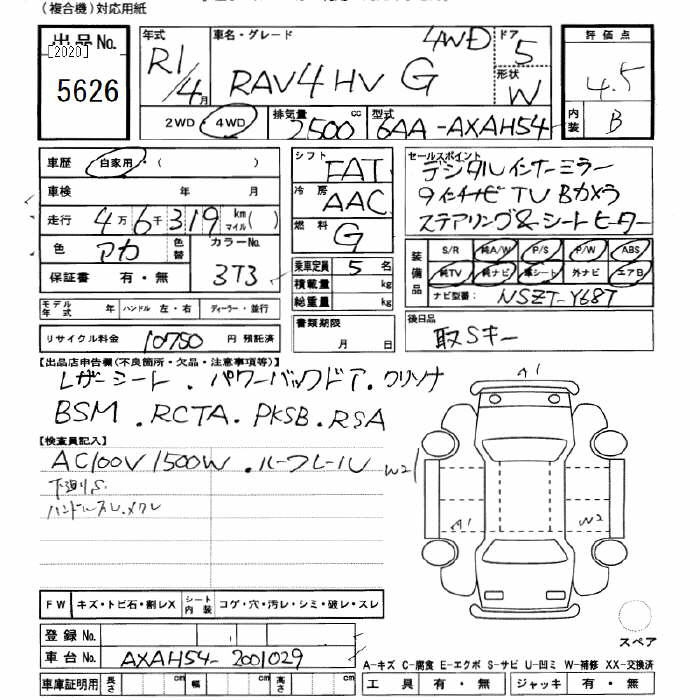 (複合機)対応用紙
出品No.
[2020]
5626
年式
R1/4月
車名・グレード
4WD
RAV4 HV G
ドア
5
形状
W
評価点
4.5
内装
B
2WD・4WD
排気量
2500cc
型式
6AA-AXAH54
車歴 自家用・( )
車検 年 月
走行 4万6千319km マイル( )
色 アカ 色替 カラーNo. 3T3
保証書 有・無
シフト
FAT
冷房
AAC
燃料
G
乗車定員 5名
積載量 kg
総重量 kg
セールスポイント
デジタルインナーミラー
9インチナビ TV Bカメラ
ステアリング&シートヒーター
装備品
S/R 純A/W P/S P/W ABS
純TV 純ナビ 革シート 外ナビ エアB
ナビ型番: NSZT-Y68T
モデル年式 年 ハンドル 左・右 ディーラー・並行
リサイクル料金 10750 円 預託済
書類期限
月 日
後日品
取Sキー
【出品店申告欄(不良箇所・欠品・注意事項等)】
レザーシート.パワーバックドア.クリソナ
BSM.RCTA.PKSB.RSA
【検査員記入】
AC100V1500W.ルーフレール
下廻りS.
ハンドルスレ.メクレ
A1
W2
A1
W2
FW キズ・トビ石・割レX シート内装 コゲ・穴・汚レ・シミ・破レ・スレ
登録No.
車台No. AXAH54-2001029
スペア
A-キズ C-腐食 E-エクボ S-サビ U-凹ミ W-補修 XX-交換済
車庫証明用 長さ cm 幅 cm 高さ cm
工具 有・無 ジャッキ 有・無